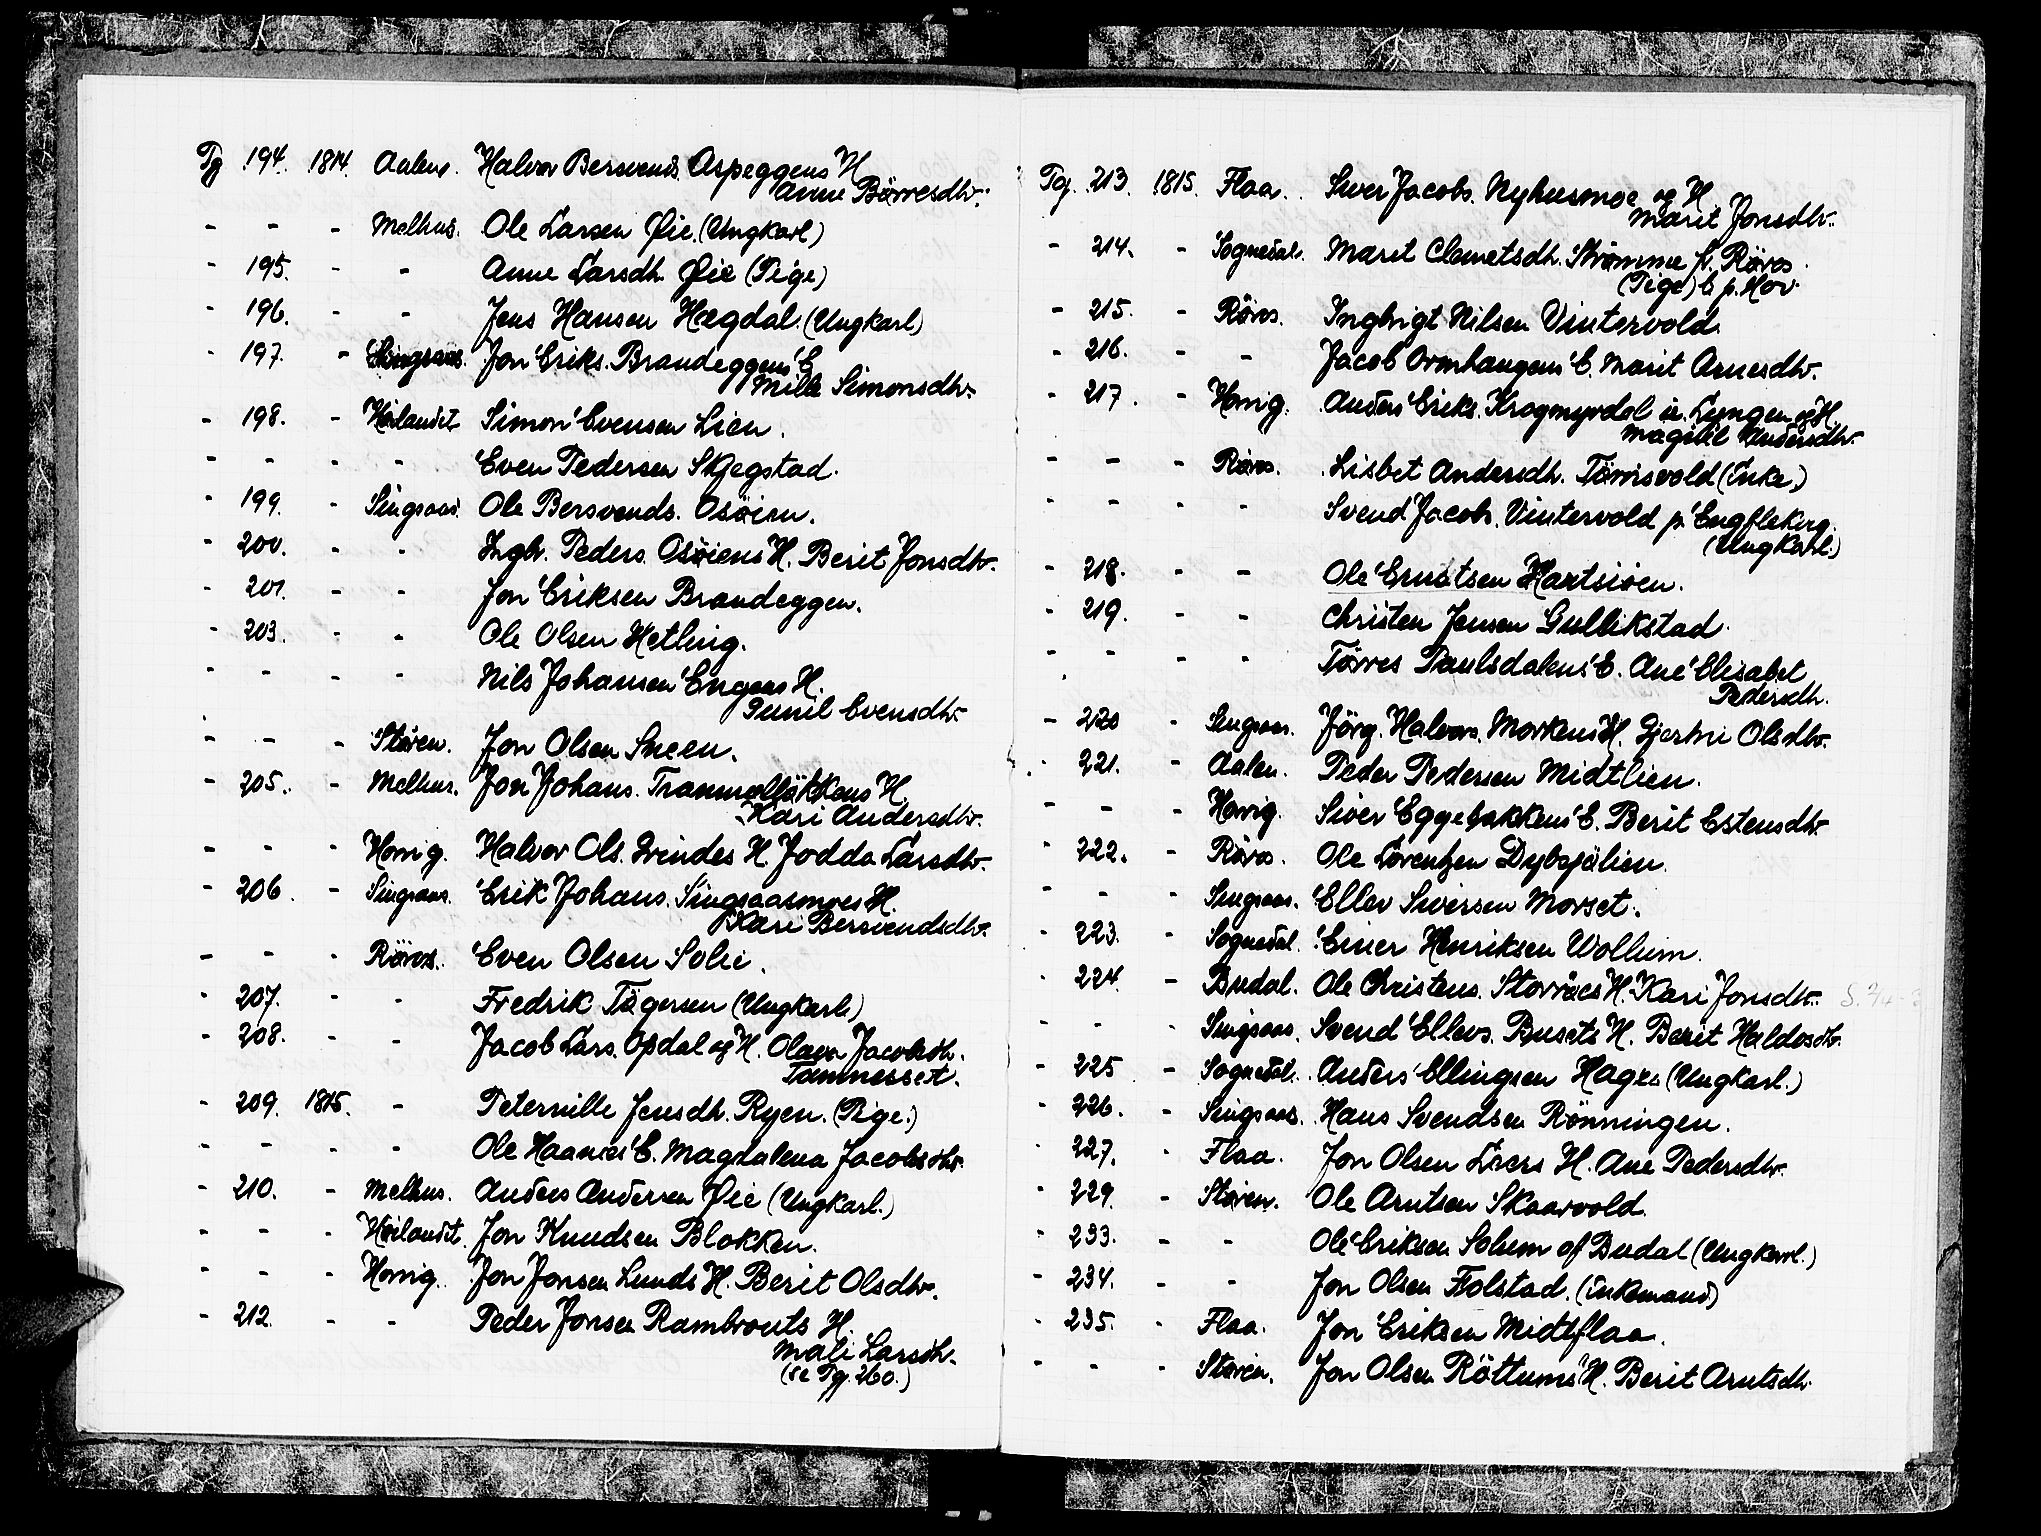 Pg 194. 1814. Aalen. Halvor Bersvends. Aspeggens H.
Anne Börresdtr.
- - - Melhus. Ole Larsen Øie. (Ungkarl)
- 195. - - Anne Larsdtr. Øie (Pige)
- 196. - - Jens Hansen Hægdal. (Ungkarl)
- 197. - Singsaas. Jon Eriks. Brandeggens E.
Mille Simonsdtr.
- 198. - Höilandet. Simon Evensen Lien.
- - - - Even Pedersen Skjegstad.
- 199. - Singsaas. Ole Bersvends. Osöien.
- 200. - - Ingbr. Peders. Osöiens H. Berit Jonsdtr.
- 201. - - Jon Eriksen Brandeggen.
- 203. - - Ole Olsen Hetling.
- - - - Nils Johansen Engens H.
Gunil Evensdtr.
- - - Støren. Jon Olsen Sneen.
- 205. - Melhus. Jon Johans. Trammelbakkens H.
Kari Andersdtr.
- - - Horrig. Halvor Ols. Grindes H. Jodda Larsdtr.
- 206. - Singsaas. Erik Johans. Singsaasmoes H.
Kari Bersvendsdtr.
- - - Röros. Even Olsen Solie.
- 207. - - Fredrik Tögersen (Ungkarl.)
- 208. - - Jacob Lars. Opdal og H. Olava Jacobsdtr.
Tamnesset.
- 209. 1815. - Peternille Jensdtr. Ryen. (Pige.)
- - - - Ole Haanes E. Magdalena Jacobsdtr.
- 210. - Melhus. Anders Andersen Øie (Ungkarl.)
- - - Höilandet. Jon Knudsen Blokken.
- - - Horrig. Jon Jonsen Lunds H. Berit Olsdtr.
- 212. - - Peder Jonsen Rambrouts H.
Mali Larsdtr.
(se Pg. 260.)
Pg. 213. 1815. Flaa. Siver Jacobs. Nyhusmoe og H.
Marit Jonsdtr.
- 214. - Sognedal. Marit Clemetsdtr. Strömme fr. Röros.
(Pige) b. p. Hov.
- 215. - Röros. Ingbrigt Nilsen Vintervold.
- 216. - - Jacob Ormhaugens E. Marit Arnesdtr.
- 217. - Horrig. Anders Eriks. Krogmyrdal in. Lyngen og H.
Magnil Andersdtr.
- - - Röros. Lisbet Andersdtr. Törrisvold (Enke.)
- - - - Svend Jacobs. Vintervold p.
(Ungkarl.)
- 218. - - Ole Erntsen Hartsiöen.
- 219. - - Christen Jensen Gullikstad.
- - - - Törres Paulsdalens E. Ane Elisabet
Pedersdtr.
- 220 - Singsaas. Jörg. Halvors. Morkens H. Gjertru Olsdtr.
- 221. - Aalen. Peder Pedersen Midtlien.
- - - Horrig. Siver Eggebakkens E. Berit Estensdtr.
- 222. - Röros. Ole Lorentzen Dybsjölien.
- - - Singsaas. Ellev Siversen Morset.
- 223. - Sognedal. Einer Henriksen Wollum.
- 224. - Budal. Ole Christens. Storröes H. Kari Jonsdtr.
- - - Singsaas. Svend Ellevs. Busets H. Berit Haldosdtr.
- 225 - Sognedal. Anders Ellingsen Hagen (Ungkarl.)
- 226. - Singsaas. Hans Svendsen Rönningen.
- 227. - Flaa. Jon Olsen Loers H. Ane Pedersdtr.
- 229. - Støren. Ole Arntsen Skaarvold.
- 233. - - Ole Eriksen Solum af Budal (Ungkarl.)
- 234. - - Jon Olsen Folstad. (Enkemand)
- 235. - Flaa. Jon Eriksen Midtflaa.
- - - Støren. Jon Olsen Röttums H. Berit Arntsdtr.